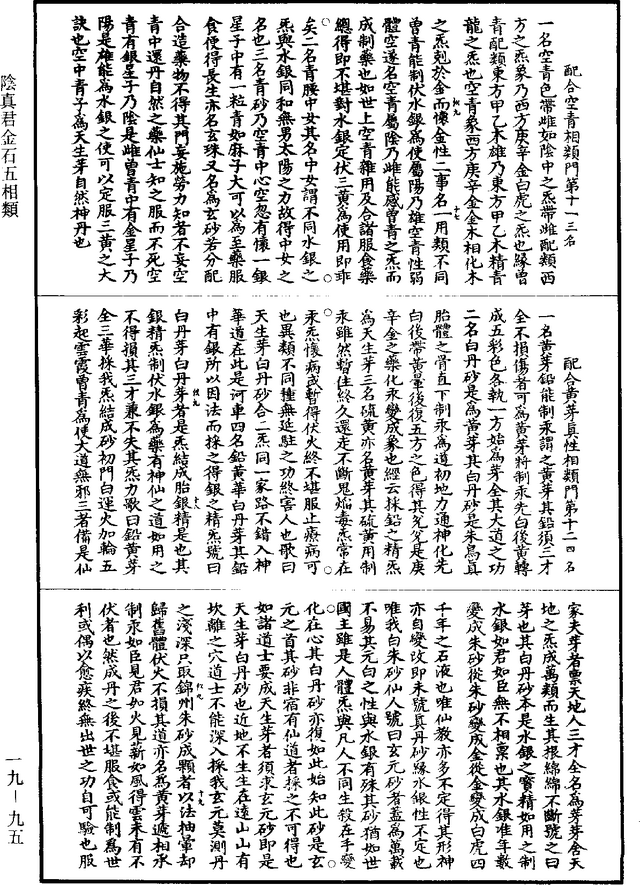 配合空青相類門第十一三名
一名空青色帶雌如陰中之炁帶雌配類西
方之炁象乃西方庚辛金白虎之炁也緣曾
青配類東方甲乙木雄乃東方甲乙木精青
龍之炁也空青象西方庚辛金金木相化木
之炁剋於金而懷金性二事名一用類不同
曾青能制伏水銀為使屬陽乃雄空青性弱
體空遂名空青屬陰乃雌能感曾青之炁而
成制藥也如世上空青雜用及合諸服食藥
總得即不堪對水銀定伏三黃為使用即乖
矣二名青腰中女其名中女謂不同水銀之
炁與水銀同和無男太陽之力故得中女之
名也三名青砂乃空青中心空忽有懷一銀
星子中有一粒青如麻子大可以為至藥服
食便得長生亦名玄珠又名為玄砂若分配
合造藥物不得其門妄施勞力知者不妄空
青中還丹自然之藥仙士知之服而不死空
青有銀星子乃陰是雌曾青中有金星子乃
陽是雄能為水銀之使可以定服三黃之大
訣也空中青子為天生芽自然神丹也
配合黃芽真性相類門第十二四名
一名黃芽鉛能制汞謂之黃芽其鉛須三才
全不損傷者可為黃芽將制汞先白後黃轉
成五彩色各執一方始為芽全其大道之功
二名白丹砂是為黃芽其白丹砂是朱鳥真
胎體之骨直下制汞為道初地力通神化先
白後帶黃暈後復五方之色得其炁炁是庚
辛金之藥化汞變成象也經云採鉛之精炁
為天生芽三名硫黃亦名黃芽其硫黃用制
汞雖然暫住終久還走不斷鬼焰毒炁常在
汞炁懷病或暫得伏火終不堪服止療病可
也異類不同種無延駐之功終害人也歌曰
天生芽白丹砂合二炁同一家路不錯入神
華道在此是河車四名鉛黃華白丹芽其鉛
中有銀所以因法而採之得銀之精炁號曰
白丹芽白丹芽者是炁結成胎銀精是也其
銀精炁制伏水銀為藥有神仙之道如用之
不得損其三才兼不失其炁力歌曰鉛黃芽
全三華採我炁結成砂初門白運火加輪五
彩起雲霞曾青為使大道無邪三者備是仙
家夫芽者稟天地人三才全名為芽芽含天
地之炁成萬類而生其根綿綿不斷號之曰
芽也其白丹砂本是水銀之寶精如用之制
水銀如君如臣無不相稟也其水銀准年數
變成朱砂從朱砂變成金從金變成白虎四
千年之石液也唯仙教亦多不定得其形神
亦自變改即未號真丹砂緣水銀性不定也
唯我白朱砂仙人號曰玄元砂者蓋為萬載
不易其元白之性與水銀有殊其砂猶如世
國主雖是人體炁與凡人不同生殺在手變
化在心其白丹砂亦復如此始知此砂是玄
元之首其砂非宿有仙道者採之不可得也
如諸道士要成天生芽者須求玄元砂即是
天生芽白丹砂也近地不生生在遠山山有
坎離之穴道士不能深入採我玄元莫測丹
之淺深只取錦州朱砂成顆者以法抽暈却
歸舊體伏火不損其道亦名為黃芽遞相承
制汞如臣見君如火見薪如風得雲未有不
伏者也然成丹之後不堪服食或能制為世
利或偶以愈疾終無出世之功自可驗也服
陰真君金石五相類
一九—九五